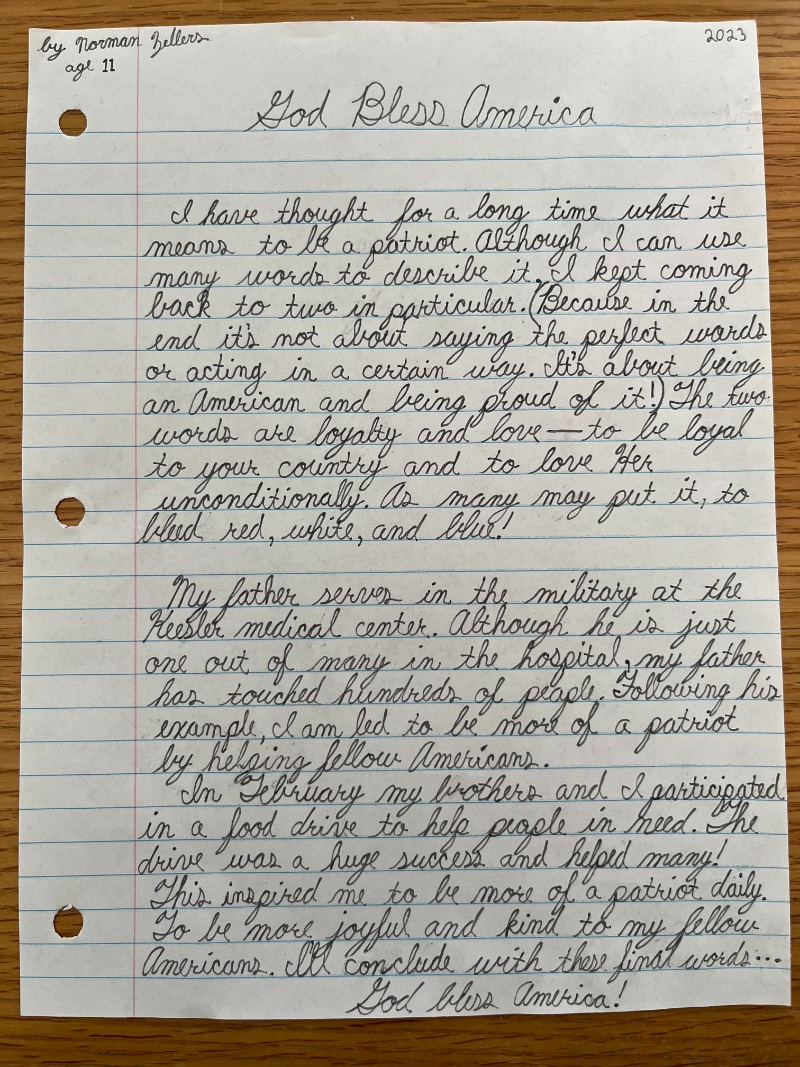 by Norman Zellers
age 11
2023
God Bless America
I have thought for a long time what it
means to be a patriot. Although I can use
many words to describe it, I kept coming
back to two in particular. (Because in the
end it's not about saying the perfect words
or acting in a certain way. It's about being
an American and being proud of it!) The two
words are loyalty and love—to be loyal
to your country and to love Her
unconditionally. As many may put it, to
bleed red, white, and blue!
My father serves in the military at the
Keesler medical center. Although he is just
one out of many in the hospital, my father
has touched hundreds of people. Following his
example, I am led to be more of a patriot
by helping fellow Americans.
In February my brothers and I participated
in a food drive to help people in need. The
drive was a huge success and helped many!
This inspired me to be more of a patriot daily.
To be more joyful and kind to my fellow
Americans. I'll conclude with these final words...
God bless America!